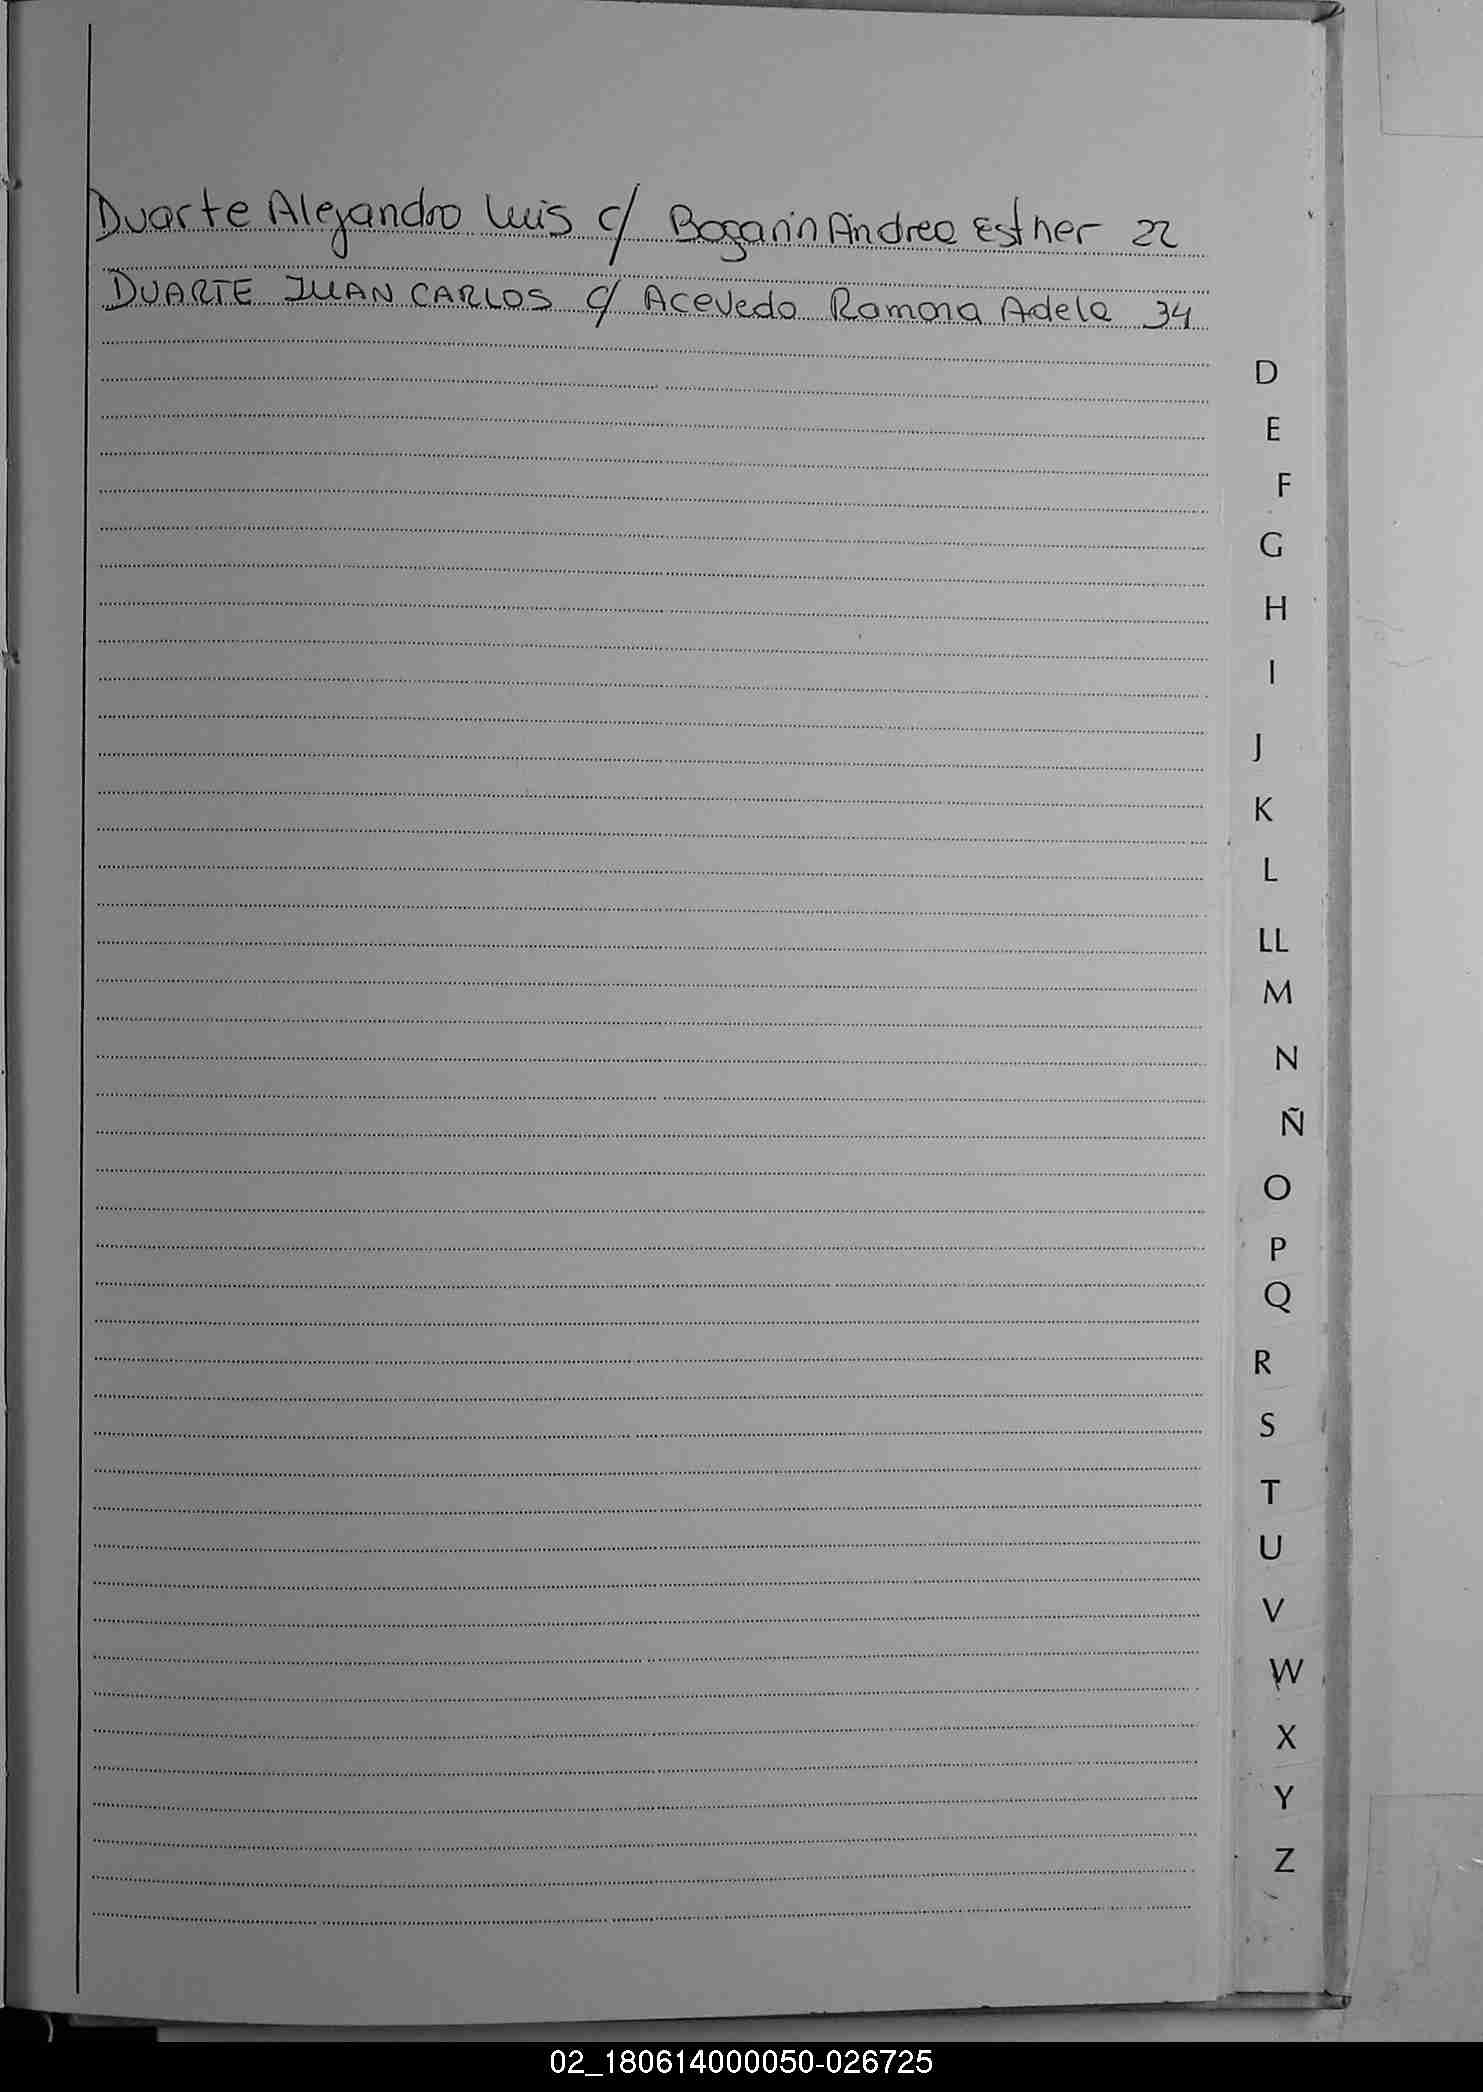 Duarte Alejandro Luis c/ Bogarin Andrea Esther 22
DUARTE JUAN CARLOS c/ Acevedo Ramona Adela 34
D
E
F
G
H
I
J
K
L
LL
M
N
Ñ
O
P
Q
R
S
T
U
V
W
X
Y
Z
02_180614000050-026725